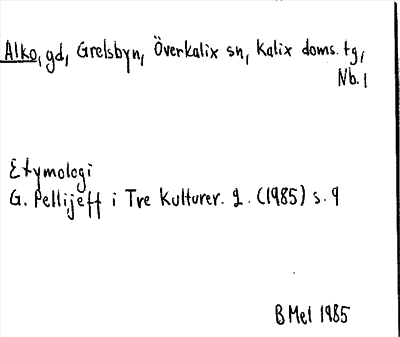 Alko, gd, Grelsbyn, Överkalix sn, Kalix doms. tg,
Nb. l
Etymologi
G. Pellijeff i Tre Kulturer. 2. (1985) s. 9
B Mel 1985